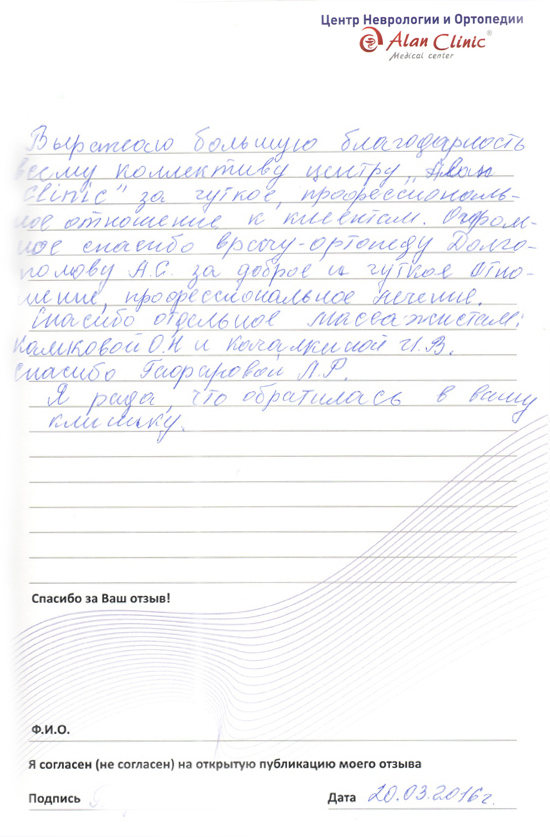 Центр Неврологии и Ортопедии
Alan Clinic®
Medical center
Выражаю большую благодарность
всему коллективу центру „Алан
Clinic" за чуткое, профессиональ-
ное отношение к клиентам. Огром-
ное спасибо врачу-ортопеду Долго-
полову А.С. за доброе и чуткое отно-
шение, профессиональное лечение.
Спасибо отдельное массажистам:
и Качалкиной И.В.
Спасибо Гафаровой Л.Р.
Я рада, что обратилась в вашу
клинику.
Спасибо за Ваш отзыв!
Ф.И.О.
Я согласен (не согласен) на открытую публикацию моего отзыва
Подпись
Дата 20.03.2016г.